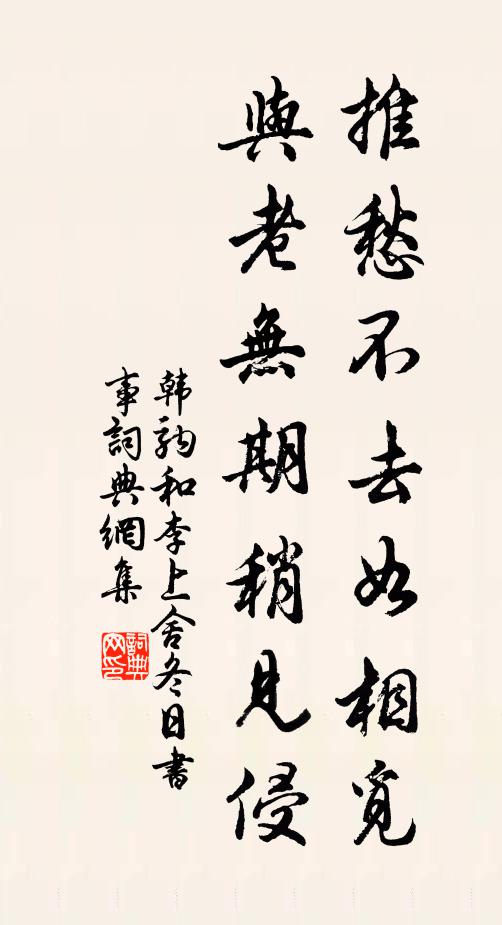 推愁不去如相覓
與老無期稍見侵
韩駒和李上舍冬日書
事詞典網集
詞典网印